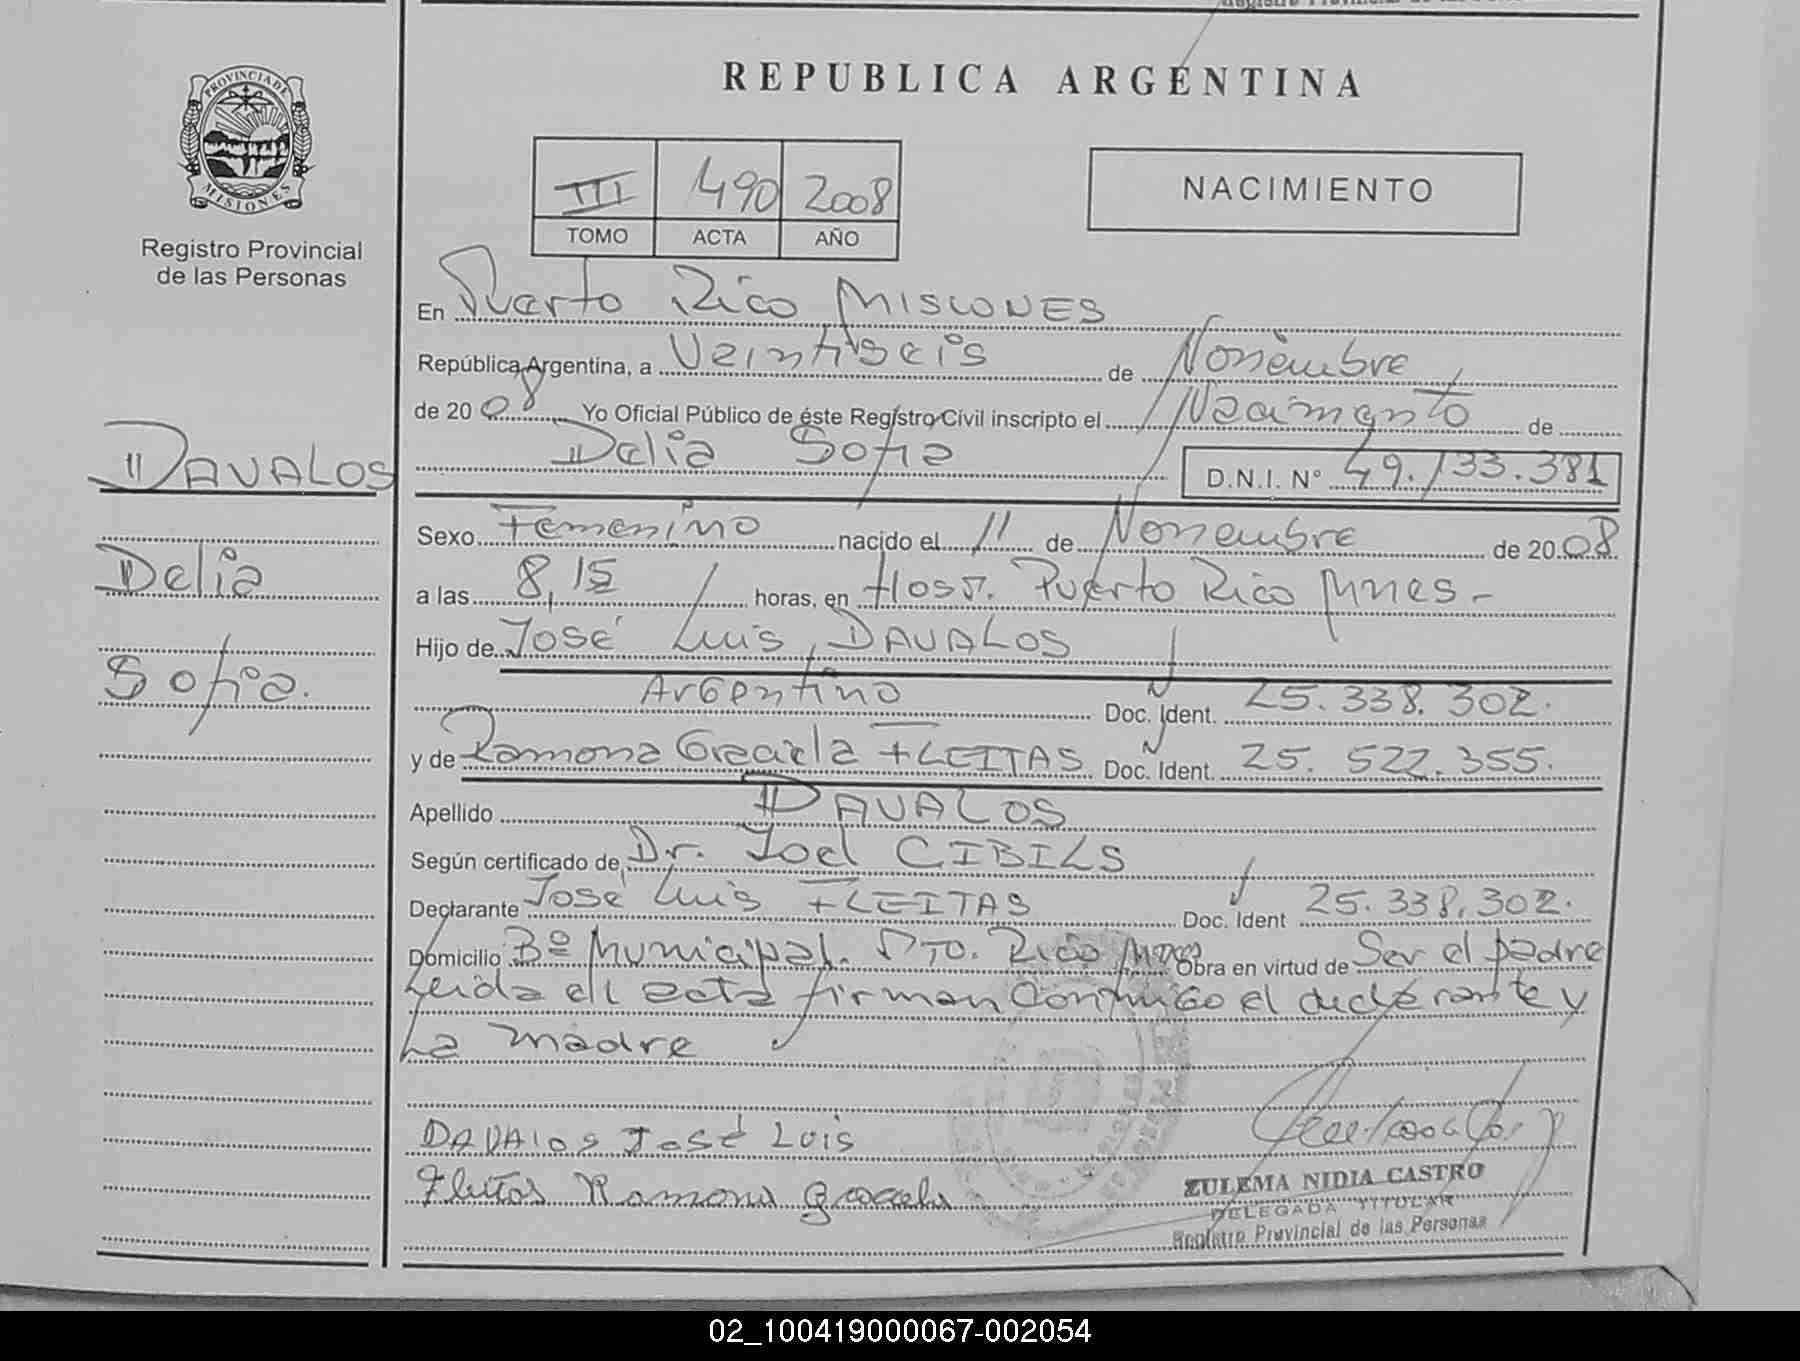 REPUBLICA ARGENTINA
PROVINCIA DE
MISIONES
Registro Provincial
de las Personas
III 490 2008
TOMO ACTA AÑO
NACIMIENTO
En Puerto Rico MISIONES
República Argentina, a Veintiseis de Noviembre
de 2008 Yo Oficial Público de éste Registro Civil inscripto el Nacimiento de
Delia Sofia D.N.I. Nº 49.133.381
DAVALOS
Delia
Sofia.
Sexo Femenino nacido el 11 de Noviembre de 2008
a las 8,15 horas, en Hosp. Puerto Rico Mnes-
Hijo de José Luis, DAVALOS
Argentino Doc. Ident. 25.338.302.
y de Ramona Graciela FLEITAS Doc. Ident. 25.522.355.
Apellido DAVALOS
Según certificado de Dr. Joel CIBILS
Declarante José Luis FLEITAS Doc. Ident 25.338.302.
Domicilio Bº Municipal. Pto. Rico Mnes Obra en virtud de Ser el padre
Leida el acta firman conmigo el declarante y
La madre
DAVAlos José Luis
Fleitas Ramona Graciela
ZULEMA NIDIA CASTRO
DELEGADA TITULAR
Registro Provincial de las Personas
02_100419000067-002054